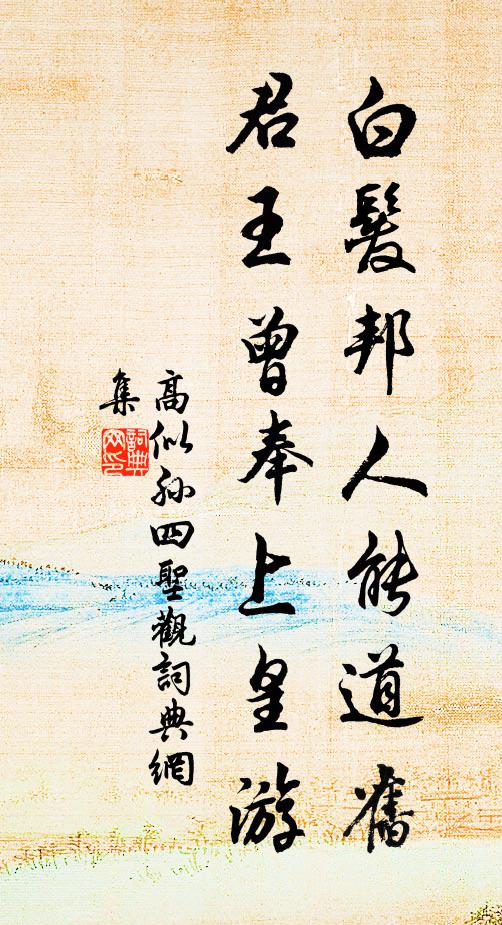 白髮邦人能道舊
君王曾奉上皇游
高似孫四聖觀詞典網
集
詞典網印